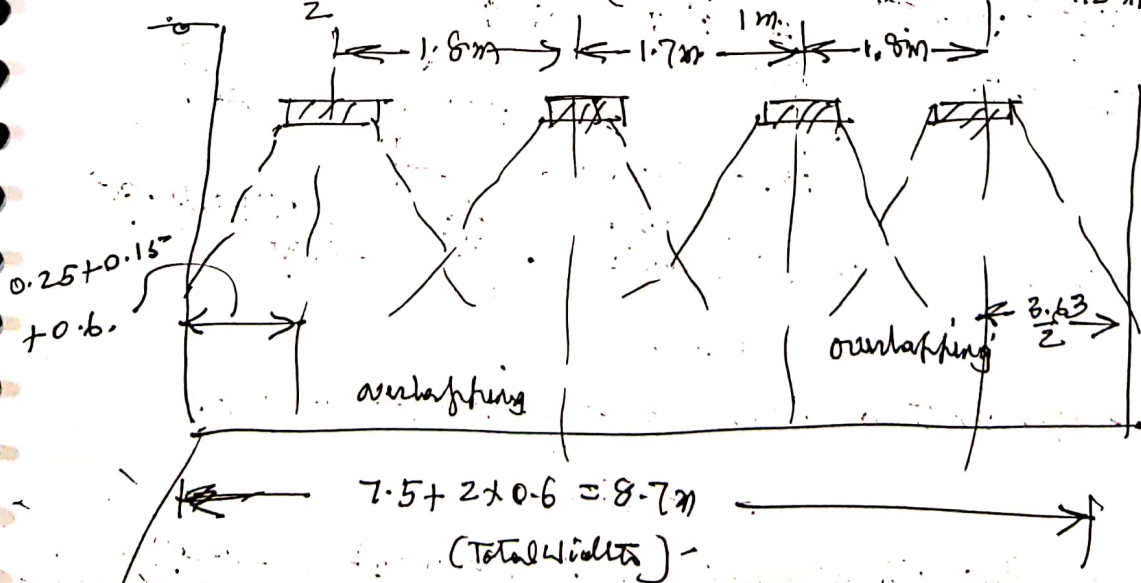 2
1m.
1.8m
1.7m
1.8m
0.25+0.15
+0.6.
3.63
2
overlapping
overlapping
7.5+ 2×0.6 = 8.7m
(Total width)